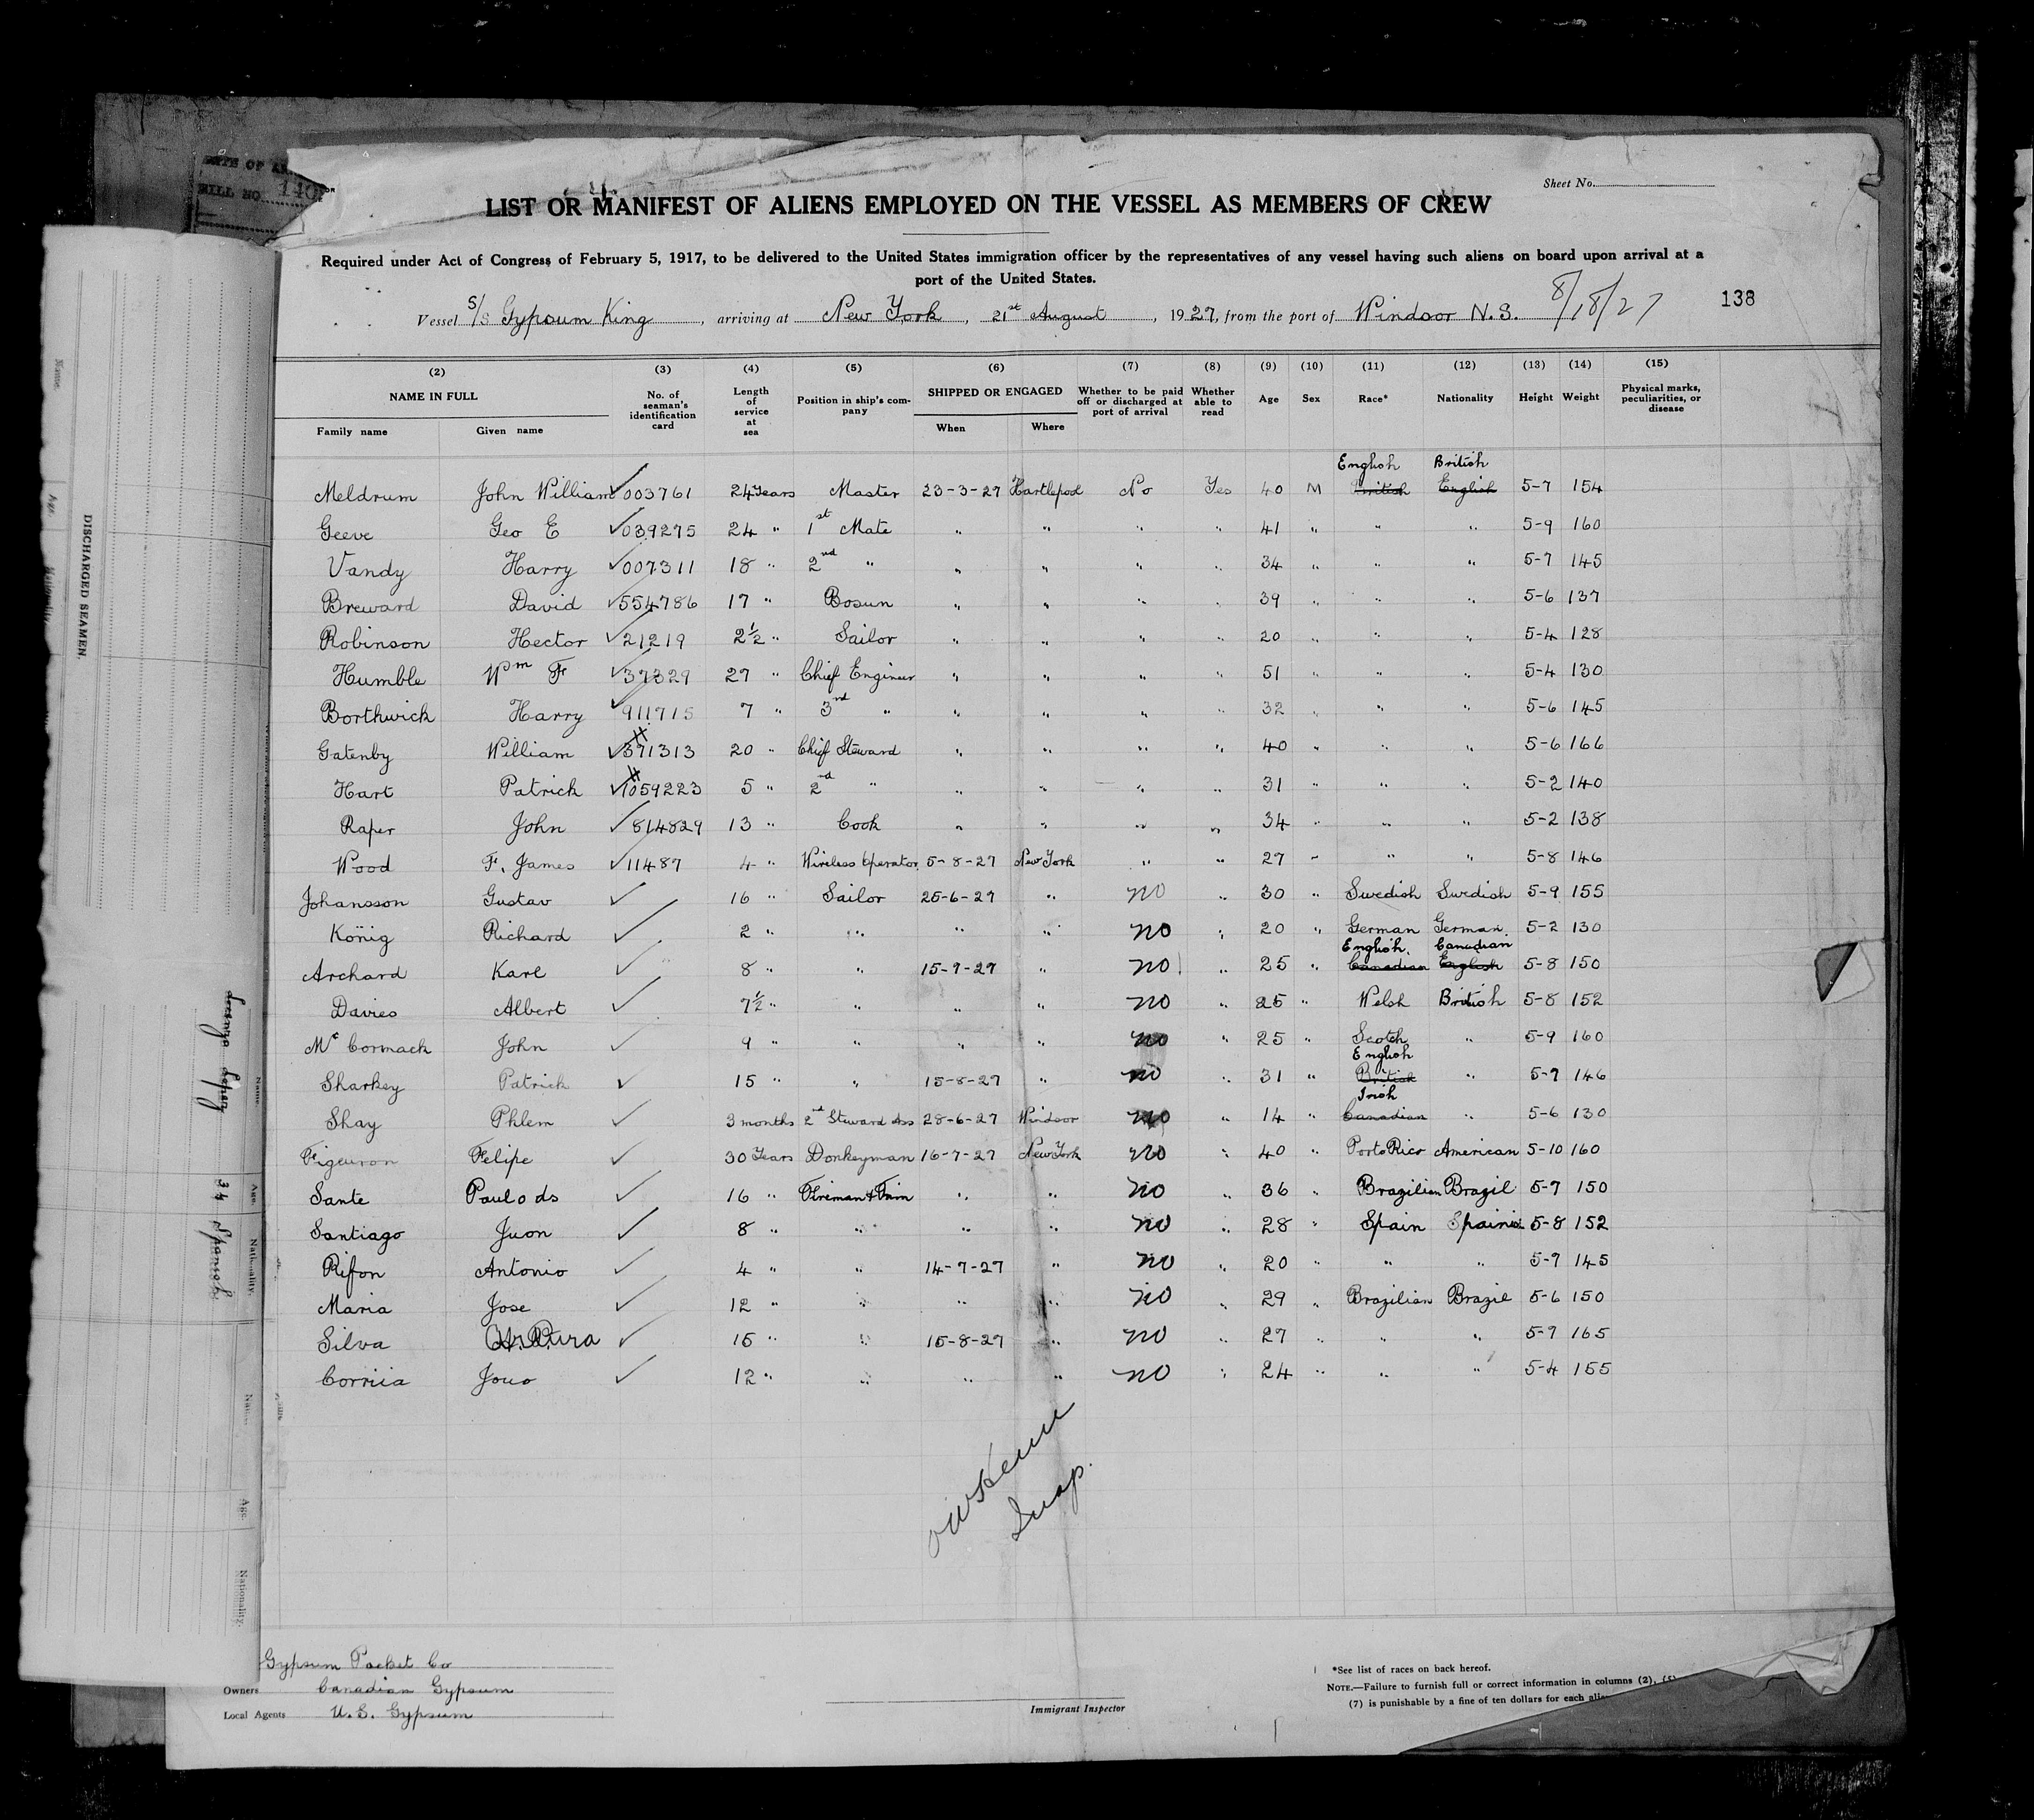 DATE OF AR
BILL NO. 140
Sheet No.
LIST OR MANIFEST OF ALIENS EMPLOYED ON THE VESSEL AS MEMBERS OF CREW
Required under Act of Congress of February 5, 1917, to be delivered to the United States immigration officer by the representatives of any vessel having such aliens on board upon arrival at a
port of the United States.
Vessel S/S Gypsum King, arriving at New York, 21st August, 1927, from the port of Windsor N.S. 8/18/27 138
(2) (3) (4) (5) (6) (7) (8) (9) (10) (11) (12) (13) (14) (15)
NAME IN FULL No. of seaman's identification card Length of service at sea Position in ship's company SHIPPED OR ENGAGED Whether to be paid off or discharged at port of arrival Whether able to read Age Sex Race* Nationality Height Weight Physical marks, peculiarities, or disease
Family name Given name When Where
English British
Meldrum John William 003761 24 Years Master 23-3-27 Hartlepool No Yes 40 M British English 5-7 154
Geeve Geo E 039275 24 " 1st Mate " " " " 41 " " " 5-9 160
Vandy Harry 007311 18 " 2nd " " " " " 34 " " " 5-7 145
Breward David 554786 17 " Bosun " " " " 39 " " " 5-6 137
Robinson Hector 21219 2½ " Sailor " " " " 20 " " " 5-4 128
Humble Wm F 37329 27 " Chief Engineer " " " " 51 " " " 5-4 130
Borthwick Harry 911715 7 " 3rd " " " " " 32 " " " 5-6 145
Gatenby William 371313 20 " Chief Steward " " " " 40 " " " 5-6 166
Hart Patrick 1059223 5 " 2nd " " " " " 31 " " " 5-2 140
Raper John 814829 13 " Cook " " " " 34 " " " 5-2 138
Wood F. James 11487 4 " Wireless Operator 5-8-27 New York " " 27 " " " 5-8 146
Johansson Gustav 16 " Sailor 25-6-27 " no " 30 " Swedish Swedish 5-9 155
König Richard 2 " " " " no " 20 " German German 5-2 130
English Canadian
Archard Karl 8 " " 15-7-27 " no " 25 " Canadian English 5-8 150
Davies Albert 7½ " " " " no " 25 " Welsh British 5-8 152
Mc Cormack John 9 " " " " no " 25 " Scotch " 5-9 160
English
Sharkey Patrick 15 " " 15-8-27 " no " 31 " British " 5-7 146
Irish
Shay Phlem 3 months 2nd Steward Ass 28-6-27 Windsor no " 14 " Canadian " 5-6 130
Figeuron Felipe 30 Years Donkeyman 16-7-27 New York no " 40 " Porto Rico American 5-10 160
Sante Paulo ds 16 " Fireman & Trim " " no " 36 " Brazilian Brazil 5-7 150
Santiago Juon 8 " " " " no " 28 " Spain 5-8 152
Rifon Antonio 4 " " 14-7-27 " no " 20 " " " 5-7 145
Maria Jose 12 " " " " no " 29 " Brazilian Brazil 5-6 150
Silva 15 " " 15-8-27 " no " 27 " " " 5-7 165
Corriia Jouo 12 " " " " no " 24 " " " 5-4 155
Insp.
Gypsum Packet Co
Owners Canadian Gypsum
Local Agents U.S. Gypsum
Immigrant Inspector
*See list of races on back hereof.
NOTE.—Failure to furnish full or correct information in columns (2), (5)
(7) is punishable by a fine of ten dollars for each alie
DISCHARGED SEAMEN.
Name. Age. Nationality.
Lopez 34 Spanish
Name. Age. Nationality.